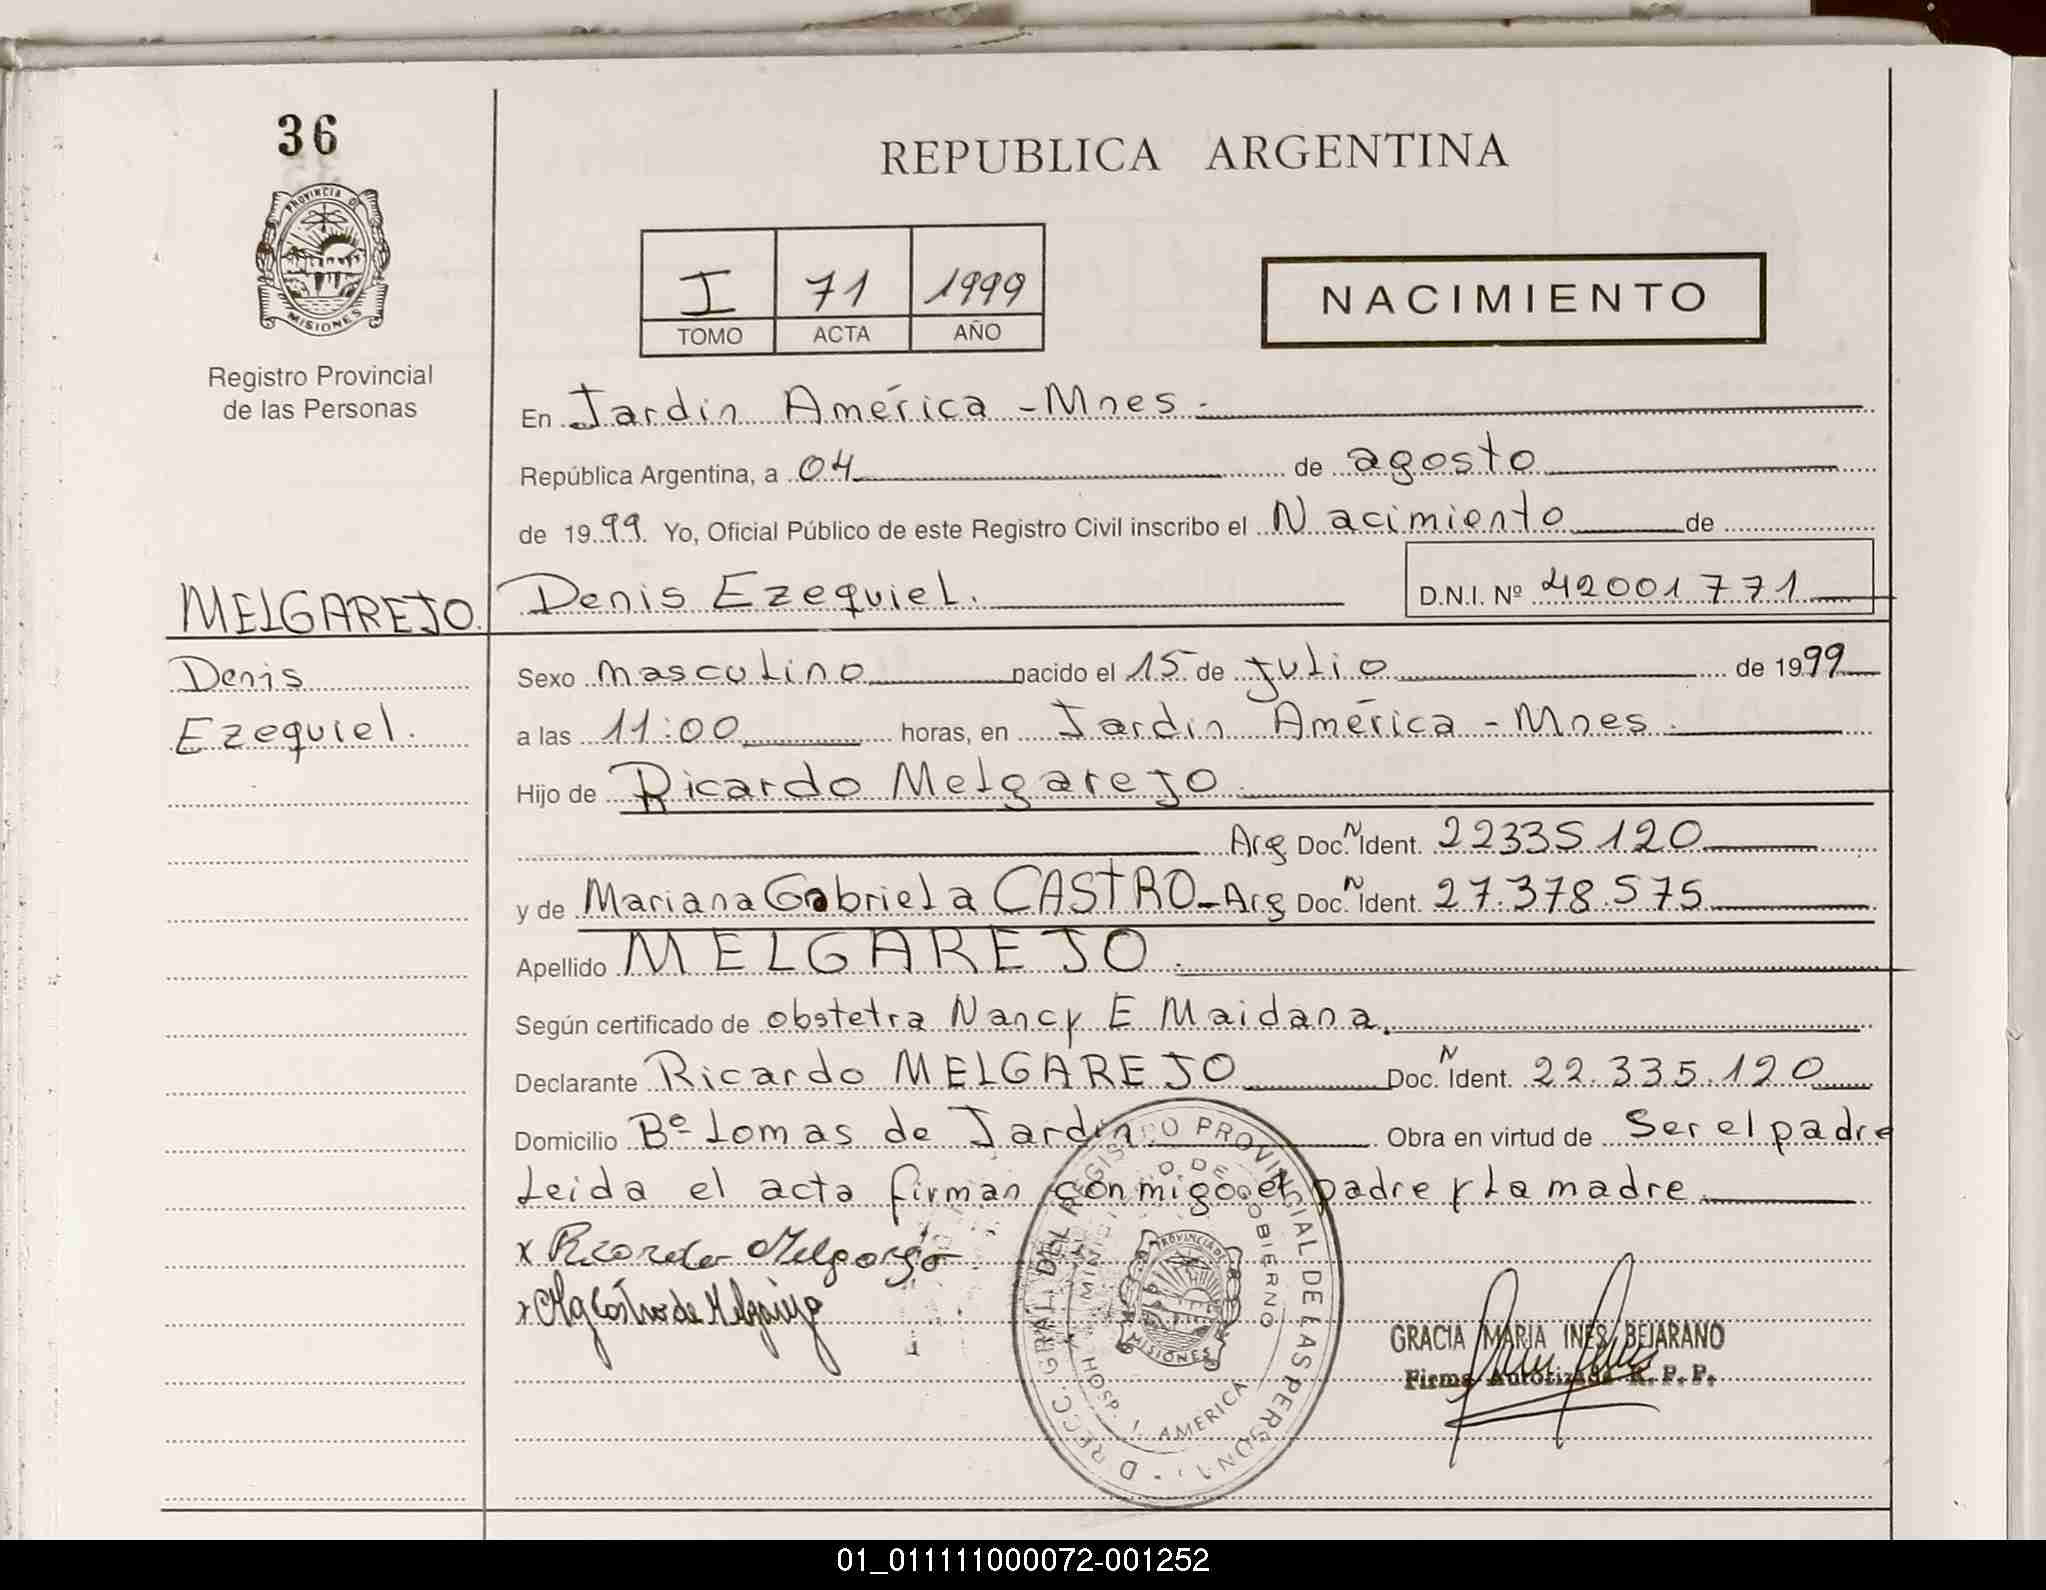 36
REPUBLICA ARGENTINA
PROVINCIA DE
MISIONES
Registro Provincial
de las Personas
I 71 1999
TOMO ACTA AÑO
NACIMIENTO
En Jardin América - Mnes.
República Argentina, a 04 de agosto
de 1999 Yo, Oficial Público de este Registro Civil inscribo el Nacimiento de
MELGAREJO. Denis Ezequiel. D.N.I. Nº 42001771
Denis
Ezequiel.
Sexo masculino nacido el 15 de julio de 1999
a las 11:00 horas, en Jardin América - Mnes.
Hijo de Ricardo Melgarejo.
Arg Doc. N Ident. 22335120
y de Mariana Gabriela CASTRO - Arg Doc. N Ident. 27.378.575
Apellido MELGAREJO.
Según certificado de obstetra Nancy E Maidana.
Declarante Ricardo MELGAREJO Doc. N Ident. 22.335.120
Domicilio Bº Lomas de Jardin Obra en virtud de Ser el padre
Leida el acta firman conmigo el padre y la madre
x Ricardo Melgarejo
GRAL DEL REGISTRO PROVINCIAL DE LAS
GOBIERNO
HOSP. J. AMERICA
PROVINCIA DE
MISIONES
GRACIA MARIA INES BEJARANO
Firma Autorizada R. P. P.
01_011111000072-001252